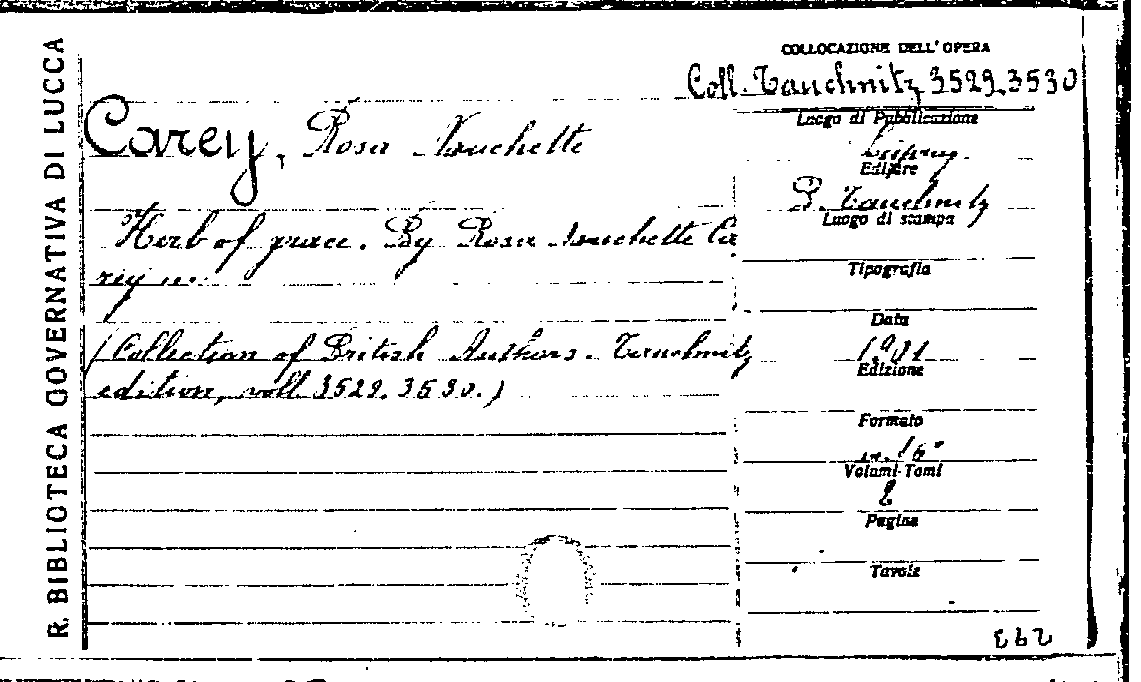 R. BIBLIOTECA GOVERNATIVA DI LUCCA
COLLOCAZIONE DELL'OPERA
Coll. Tauchnitz 3529.3530
Carey, Rosa Nouchette
Herb of grace. By Rosa Nouchette Ca
rey ...
(Collection of British Authors. Tauchnitz
edition, voll. 3529.3530.)
Luogo di Pubblicazione
Leipzig
Editore
B. Tauchnitz
Luogo di stampa
Tipografia
Data
1901
Edizione
Formato
in 16°
Volumi-Tomi
2
Pagine
Tavole